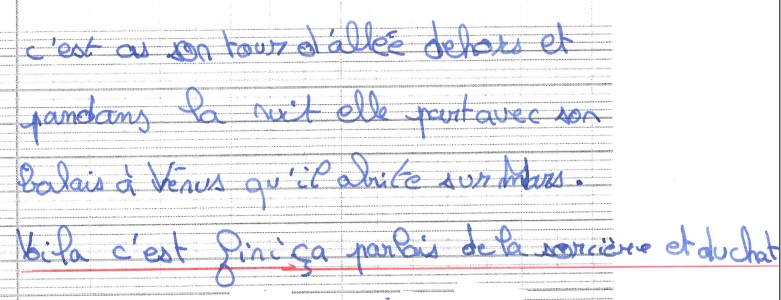 c'est as son tour d'allée dehors et
pandans la nuit elle part avec son
balais à Vénus qu'il abrite sur Mars.
Voila c'est fini ça parlais de la sorcière et du chat